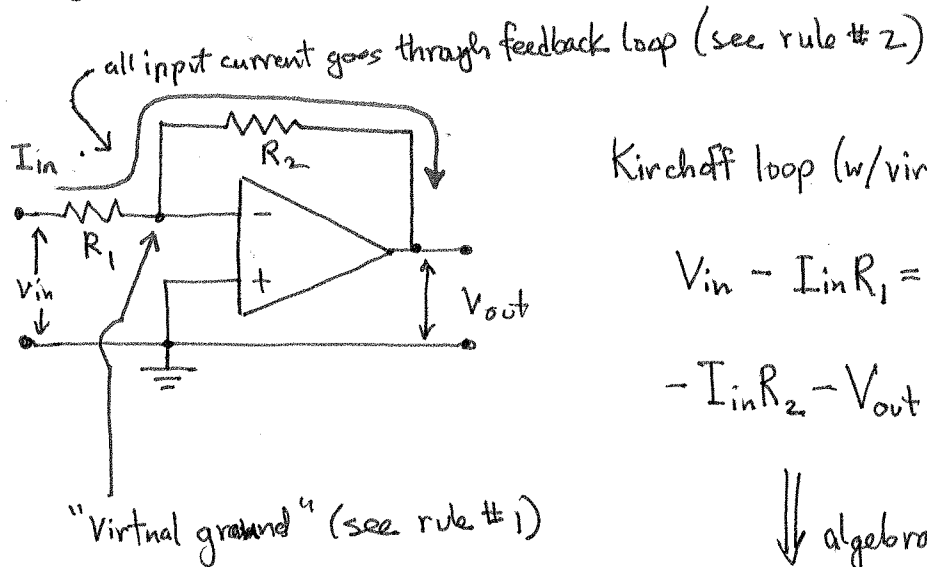 all input current goes through feedback loop (see rule #2)
I_in
R_2
R_1
-
+
V_in
V_out
"Virtual ground" (see rule #1)
Kirchoff loop (w/vir
V_in - I_in R_1 =
- I_in R_2 - V_out
⇓ algebra